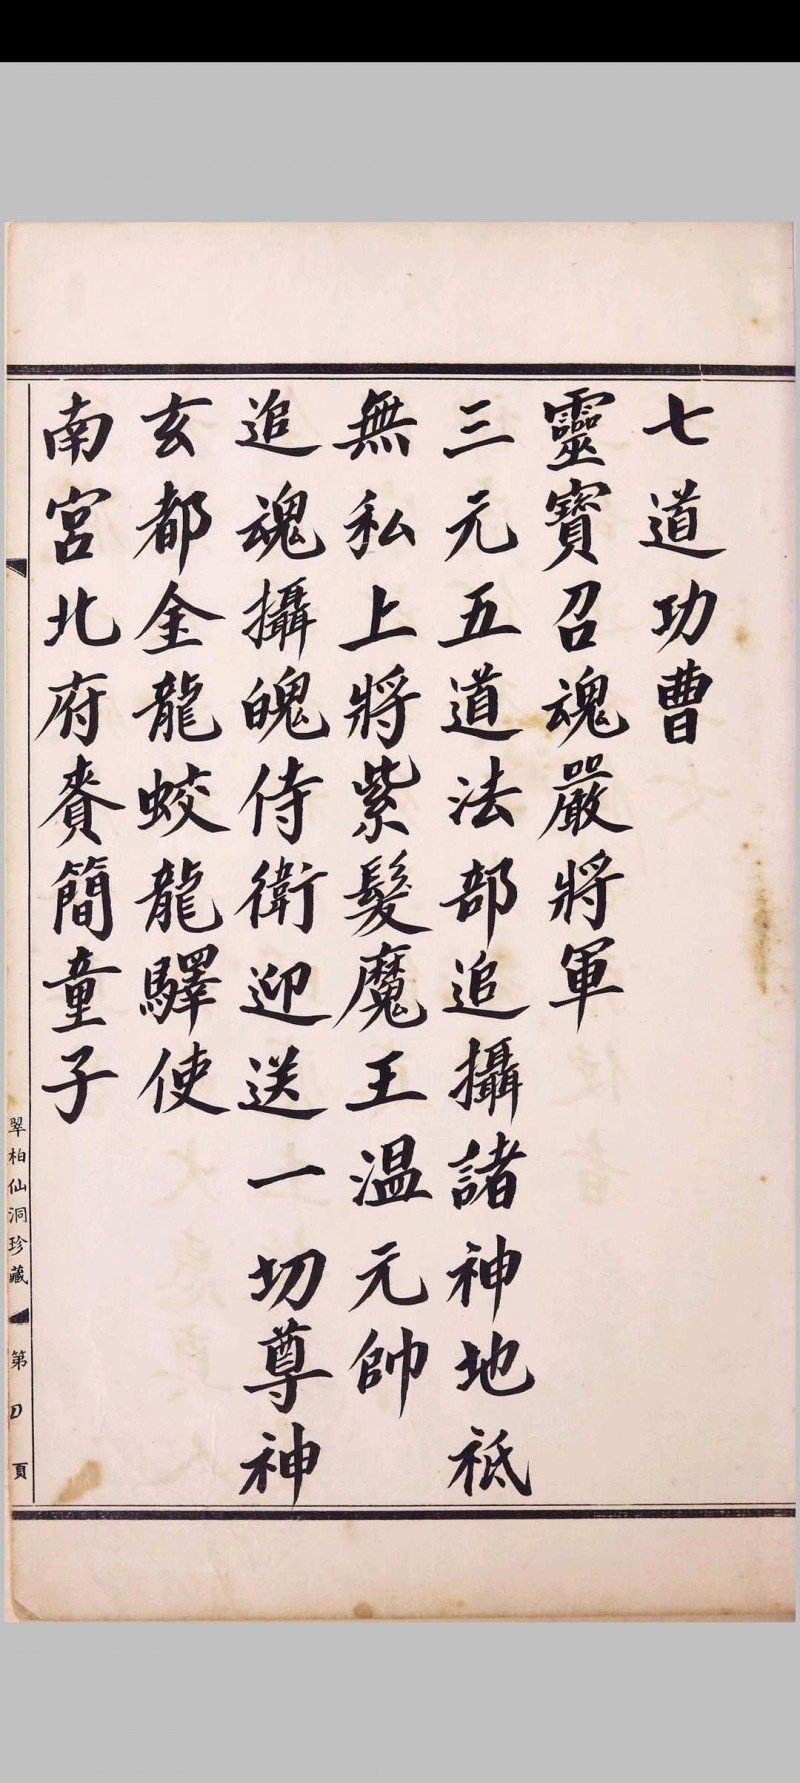 七道功曹
靈寶召魂嚴將軍
三元五道法部追攝諸神地祗
無私上將紫髮魔王温元帥
追魂攝魄侍衛迎送一切尊神
玄都金龍蛟龍驛使
南宮北府賚簡童子
翠柏仙洞珍藏
第 頁